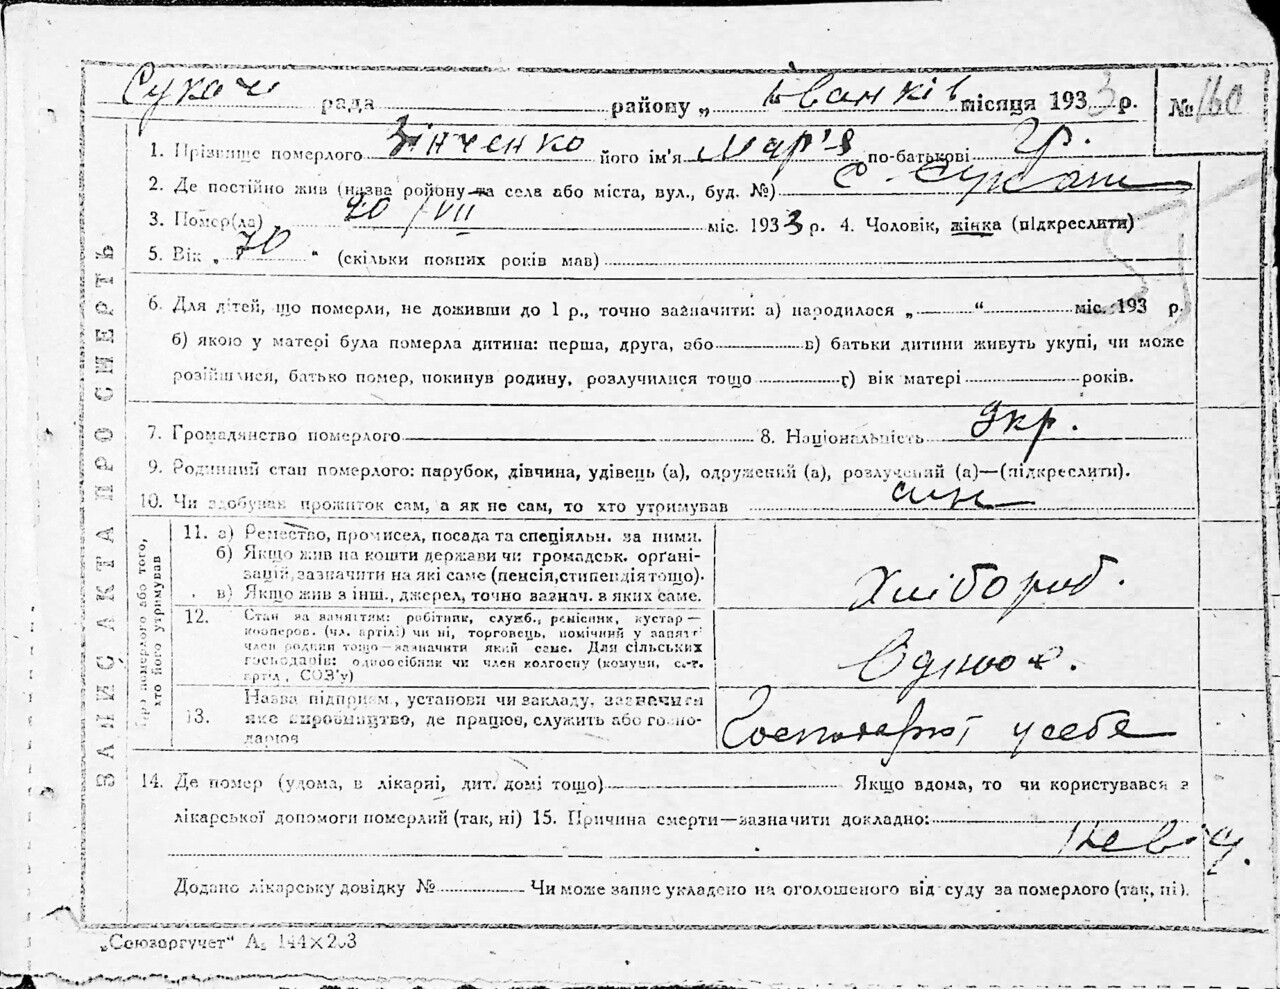 Сукачі рада району „ Іванків місяця 1933 р. № 160
ЗАПИС АКТА ПРО СМЕРТЬ
1. Прізвище померлого Зінченко його ім'я Мар'я по-батькові Гр.
2. Де постійно жив (назва ройону та села або міста, вул., буд. №) с. Сукачі
3. Помер(ла) 20/VII міс. 1933 р. 4. Чоловік, жінка (підкреслити)
5. Вік „ 70 “ (скільки повних років мав)
6. Для дітей, що померли, не доживши до 1 р., точно зазначити: а) народилося „ “ міс. 193 р.
б) якою у матері була померла дитина: перша, друга, або в) батьки дитини живуть укупі, чи може
розійшлися, батько помер, покинув родину, розлучилися тощо г) вік матері років.
7. Громадянство померлого 8. Національність Укр.
9. Родинний стан померлого: парубок, дівчина, удівець (а), одружений (а), розлучений (а)—(підкреслити).
10. Чи здобував прожиток сам, а як не сам, то хто утримував син
Про померлого або того,
хто його утримував
11. а) Ремество, промисел, посада та спеціяльн. за ними.
б) Якщо жив на кошти держави чи громадськ. орґані-
зацій, зазначити на які саме (пенсія, стипендія тощо).
в) Якщо жив з інш., джерел, точно зазнач. з яких саме.
Хлібороб.
12. Стан за заняттям: робітник, служб., ремісник, кустар—
кооперов. (чл. артілі) чи ні, торговець, помічний у занятті
член родини тощо—зазначити який саме. Для сільських
господарів: одноосібник чи член колгоспу (комуни, с.-г.
артіл., СОЗ'у)
Одноос.
13. Назва підприєм., установи чи закладу, зазначити
яке виробництво, де працює, служить або госпо-
дарює
Господарст у себе
14. Де помер (удома, в лікарні, дит. домі тощо) Якщо вдома, то чи користувався з
лікарської допомоги померлий (так, ні) 15. Причина смерти—зазначити докладно:
Невід.
Додано лікарську довідку № Чи може запис укладено на оголошеного від суду за померлого (так, ні).
„Союзоргучет“ А₅ 144×203